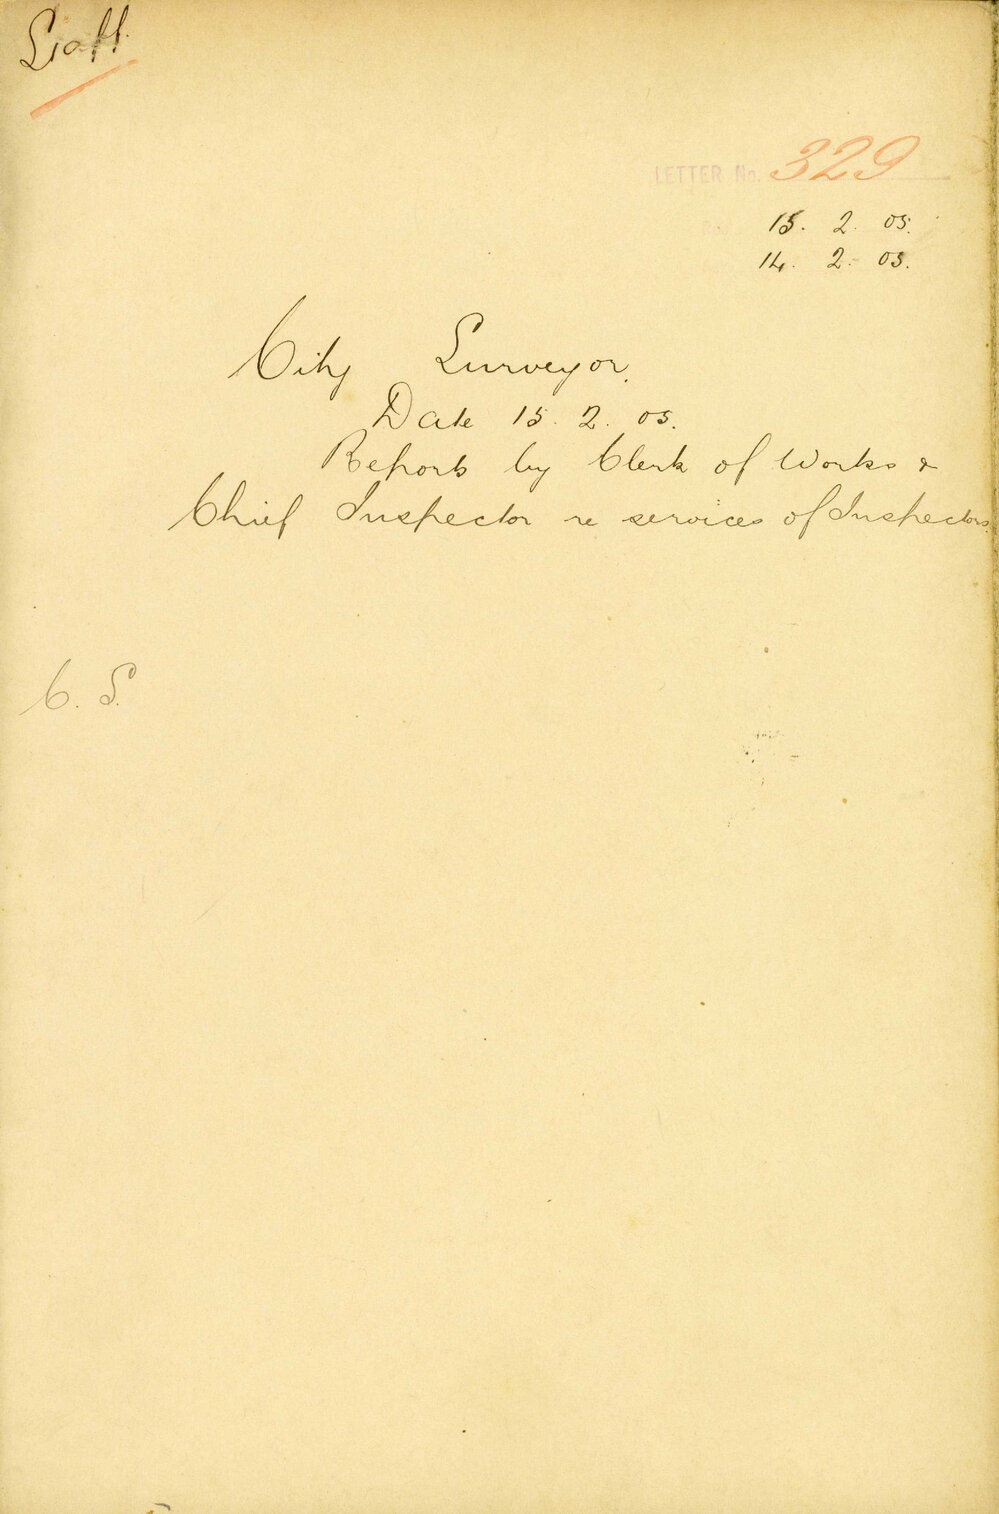 Staff.
LETTER No. 329
15. 2. 05.
14. 2. 05.
City Surveyor.
Date 15. 2. 05.
Reports by Clerk of Works &
Chief Inspector re services of Inspectors.
C. S.